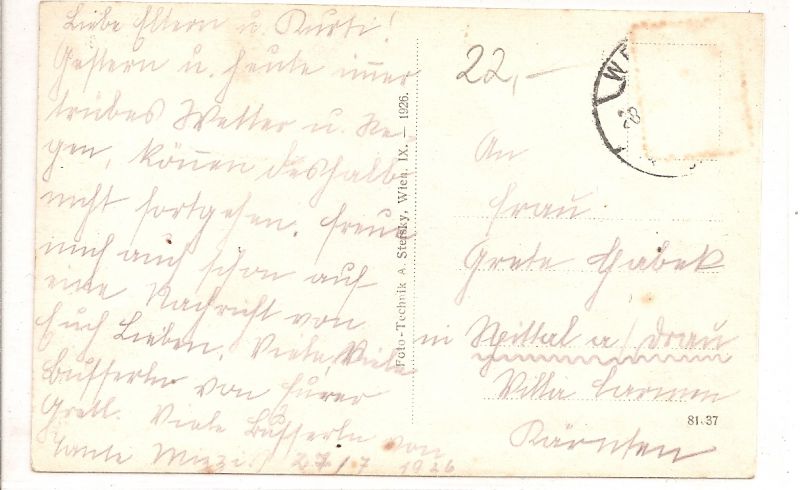 Liebe Eltern u. Kurti!
Gestern u. heute im̅er
trübes Wetter u. Re-
gen, kön̅en deshalb
nicht fortgehen. Freue
mich auch schon auf
eine Nachricht von
Euch Lieben. Viele, Viele
Busserln von Eurer
Gretl. Viele Busserln von
Tante Mizzi 27/7 1926
Foto-Technik A. Stefsky, Wien, IX. — 1926.
22,—
28
An
Frau
Grete Habek
in Spittal a/Drau
Villa Carmen
Kärnten
81.37